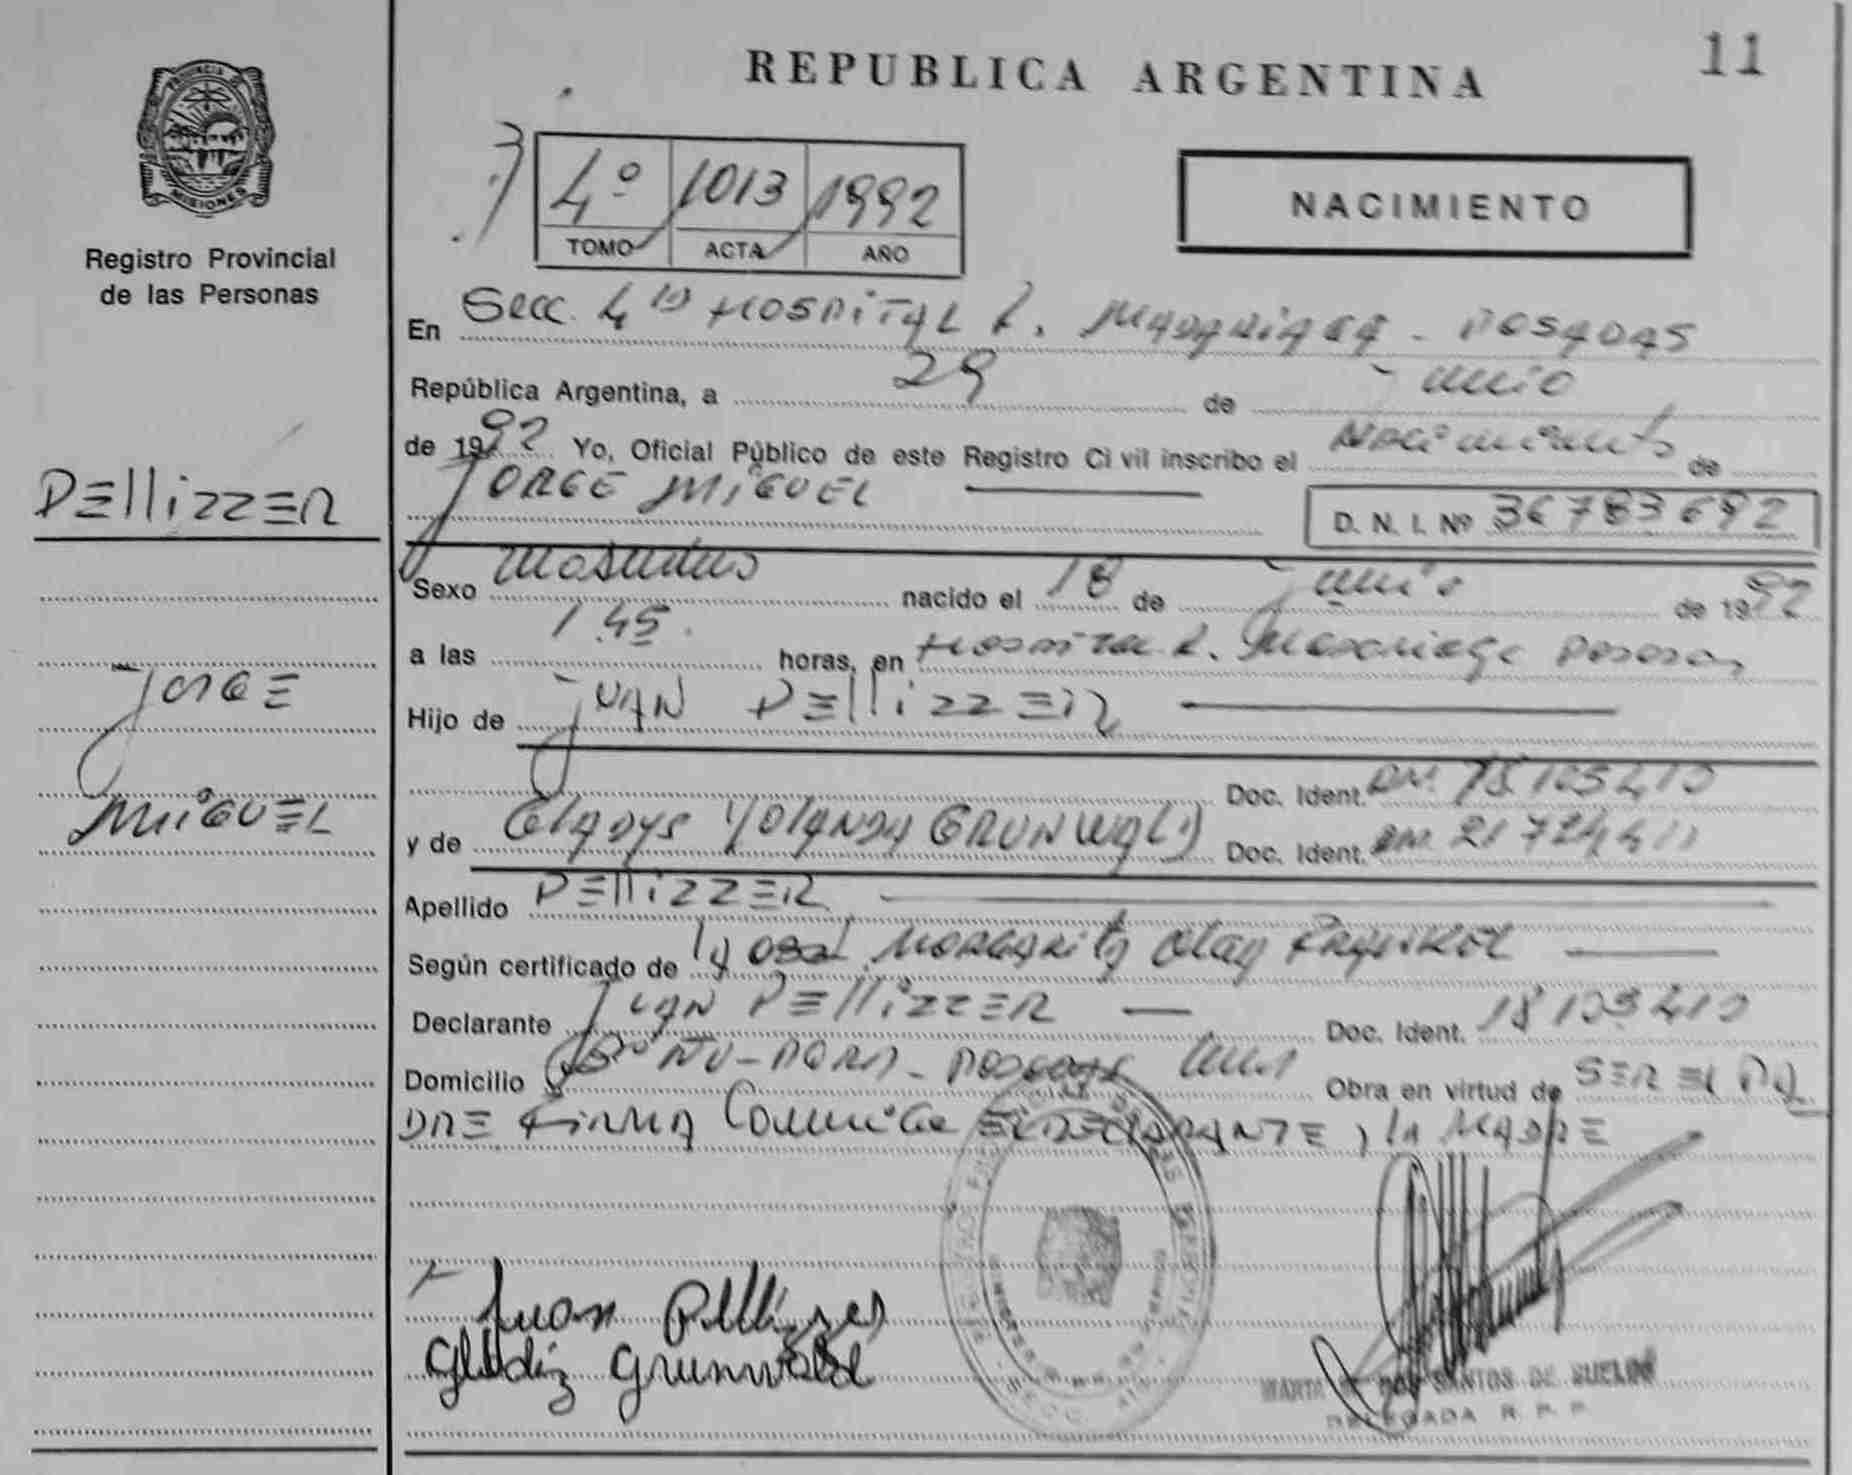 REPUBLICA ARGENTINA
11
PROVINCIA DE
MISIONES
Registro Provincial
de las Personas
4º 1013 1992
TOMO ACTA AÑO
NACIMIENTO
En Secc. 4ta HOSPITAL R. MADARIAGA - POSADAS
República Argentina, a 29 de Junio
de 1992 Yo, Oficial Público de este Registro Civil inscribo el Nacimiento de
JORGE MIGUEL
D. N. I. Nº 36783692
PELLIZZER
JORGE
MIGUEL
Sexo Masculino nacido el 18 de Junio de 1992
a las 1.45 horas, en Hospital R. Madariaga Posadas
Hijo de JUAN PELLIZZER
Doc. Ident. DNI. 18103410
y de GLADYS YOLANDA GRUNWALD Doc. Ident. DNI. 21724411
Apellido PELLIZZER
Según certificado de la Obst. MARGARITA Olay
Declarante JUAN PELLIZZER Doc. Ident. 18103410
Domicilio POSADAS Obra en virtud de SER EL PA
DRE FIRMA EL DECLARANTE y la MADRE
Juan Pellizzer
Gladiz Grunwald
MARTA DOS SANTOS DE
DELEGADA R. P. P.